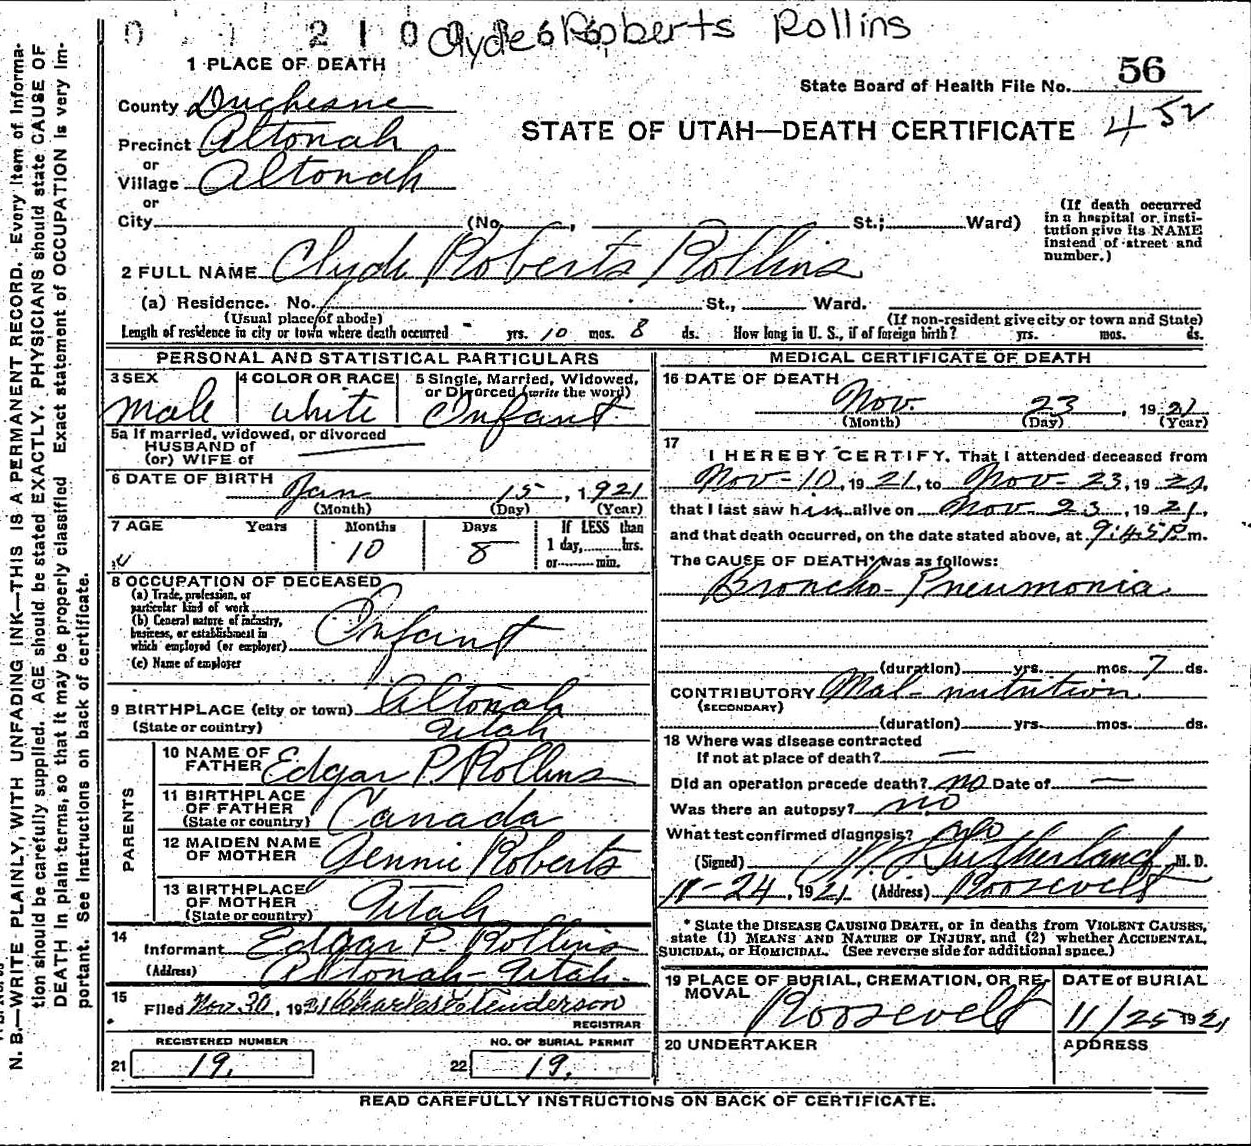 0 1 210 66
Clyde Roberts Rollins
1 PLACE OF DEATH
State Board of Health File No. 56
452
County Duchesne
STATE OF UTAH—DEATH CERTIFICATE
Precinct Altonah
or
Village Altonah
or
City (No. , St.; Ward)
(If death occurred in a hospital or institution give its NAME instead of street and number.)
2 FULL NAME Clyde Roberts Rollins
(a) Residence. No. St., Ward.
(Usual place of abode) (If non-resident give city or town and State)
Length of residence in city or town where death occurred - yrs. 10 mos. 8 ds. How long in U. S., if of foreign birth? yrs. mos. ds.
PERSONAL AND STATISTICAL PARTICULARS
3 SEX
male
4 COLOR OR RACE
white
5 Single, Married, Widowed, or Divorced (write the word)
Infant
5a If married, widowed, or divorced
HUSBAND of
(or) WIFE of
6 DATE OF BIRTH
Jan 15, 1921
(Month) (Day) (Year)
7 AGE Years Months Days If LESS than
10 8 1 day, hrs.
or min.
8 OCCUPATION OF DECEASED
(a) Trade, profession, or
particular kind of work
(b) General nature of industry,
business, or establishment in
which employed (or employer) Infant
(c) Name of employer
9 BIRTHPLACE (city or town) Altonah
(State or country) Utah
PARENTS
10 NAME OF
FATHER Edgar P. Rollins
11 BIRTHPLACE
OF FATHER
(State or country) Canada
12 MAIDEN NAME
OF MOTHER Jennie Roberts
13 BIRTHPLACE
OF MOTHER
(State or country) Utah
14
Informant Edgar P. Rollins
(Address) Altonah- Utah.
15
Filed Nov. 30, 1921 Charles Henderson
REGISTRAR
REGISTERED NUMBER
21 19.
NO. OF BURIAL PERMIT
22 19.
MEDICAL CERTIFICATE OF DEATH
16 DATE OF DEATH
Nov. 23, 1921
(Month) (Day) (Year)
17
I HEREBY CERTIFY, That I attended deceased from
Nov-10, 1921, to Nov-23, 1921,
that I last saw him alive on Nov-23, 1921,
and that death occurred, on the date stated above, at 9:45 P m.
The CAUSE OF DEATH* was as follows:
Broncho-Pneumonia.
(duration) yrs. mos. 7 ds.
CONTRIBUTORY Mal-nutrition
(SECONDARY)
(duration) yrs. mos. ds.
18 Where was disease contracted
If not at place of death? —
Did an operation precede death? no Date of —
Was there an autopsy? no
What test confirmed diagnosis? no
(Signed) Sutherland M. D.
11-24, 1921 (Address) Roosevelt
* State the DISEASE CAUSING DEATH, or in deaths from VIOLENT CAUSES,
state (1) MEANS AND NATURE OF INJURY, and (2) whether ACCIDENTAL,
SUICIDAL, or HOMICIDAL. (See reverse side for additional space.)
19 PLACE OF BURIAL, CREMATION, OR RE-
MOVAL
Roosevelt
DATE OF BURIAL
11/25 1921
20 UNDERTAKER
ADDRESS
READ CAREFULLY INSTRUCTIONS ON BACK OF CERTIFICATE.
N. B.—WRITE PLAINLY, WITH UNFADING INK—THIS IS A PERMANENT RECORD. Every item of informa-
tion should be carefully supplied. AGE should be stated EXACTLY. PHYSICIANS should state CAUSE OF
DEATH in plain terms, so that it may be properly classified. Exact statement of OCCUPATION is very im-
portant. See instructions on back of certificate.